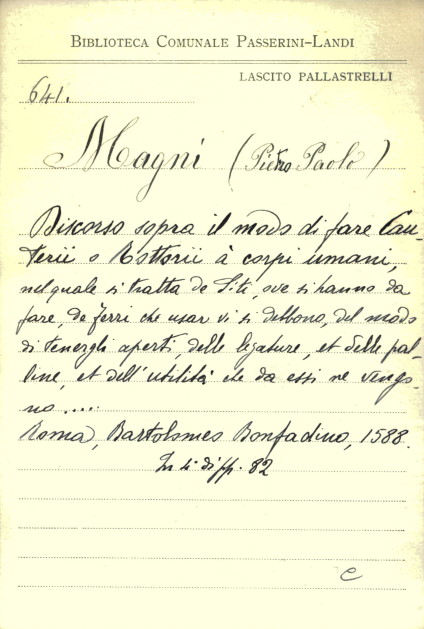 BIBLIOTECA COMUNALE PASSERINI-LANDI
LASCITO PALLASTRELLI
641.
Magni (Pietro Paolo)
Discorso sopra il modo di fare Cau-
terii o Rottorii à corpi umani,
nel quale si tratta de Siti, ove si hanno da
fare, de ferri che usar vi si debbono, del modo
di tenergli aperti, delle legature, et delle pal-
line, et dell'utilità che da essi ne vengo-
no....
Roma, Bartolomeo Bonfadino, 1588.
In 4° di pp. 82
e